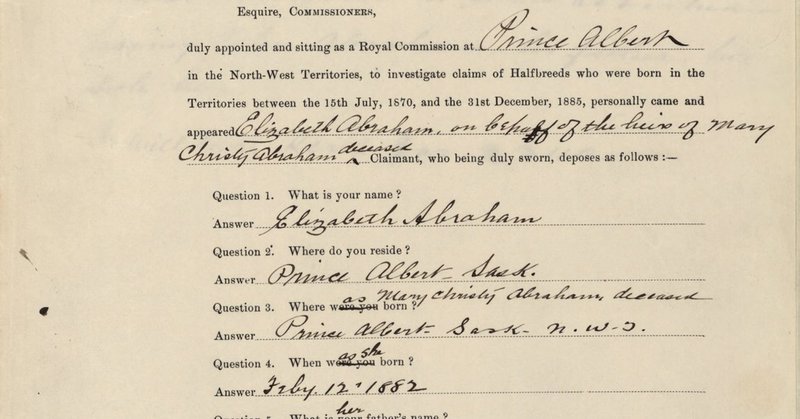 Esquire, COMMISSIONERS,
duly appointed and sitting as a Royal Commission at Prince Albert
in the North-West Territories, to investigate claims of Halfbreeds who were born in the
Territories between the 15th July, 1870, and the 31st December, 1885, personally came and
appeared Elizabeth Abraham, on behalf of the heirs of Mary
Christy Abraham deceased Claimant, who being duly sworn, deposes as follows :—
Question 1. What is your name ?
Answer Elizabeth Abraham
Question 2. Where do you reside ?
Answer Prince Albert - Sask.
Question 3. Where were you as Mary Christy Abraham, deceased born ?
Answer Prince Albert - Sask - N. W. T.
Question 4. When were you as she born ?
Answer Feby. 12, 1882
her father's name ?